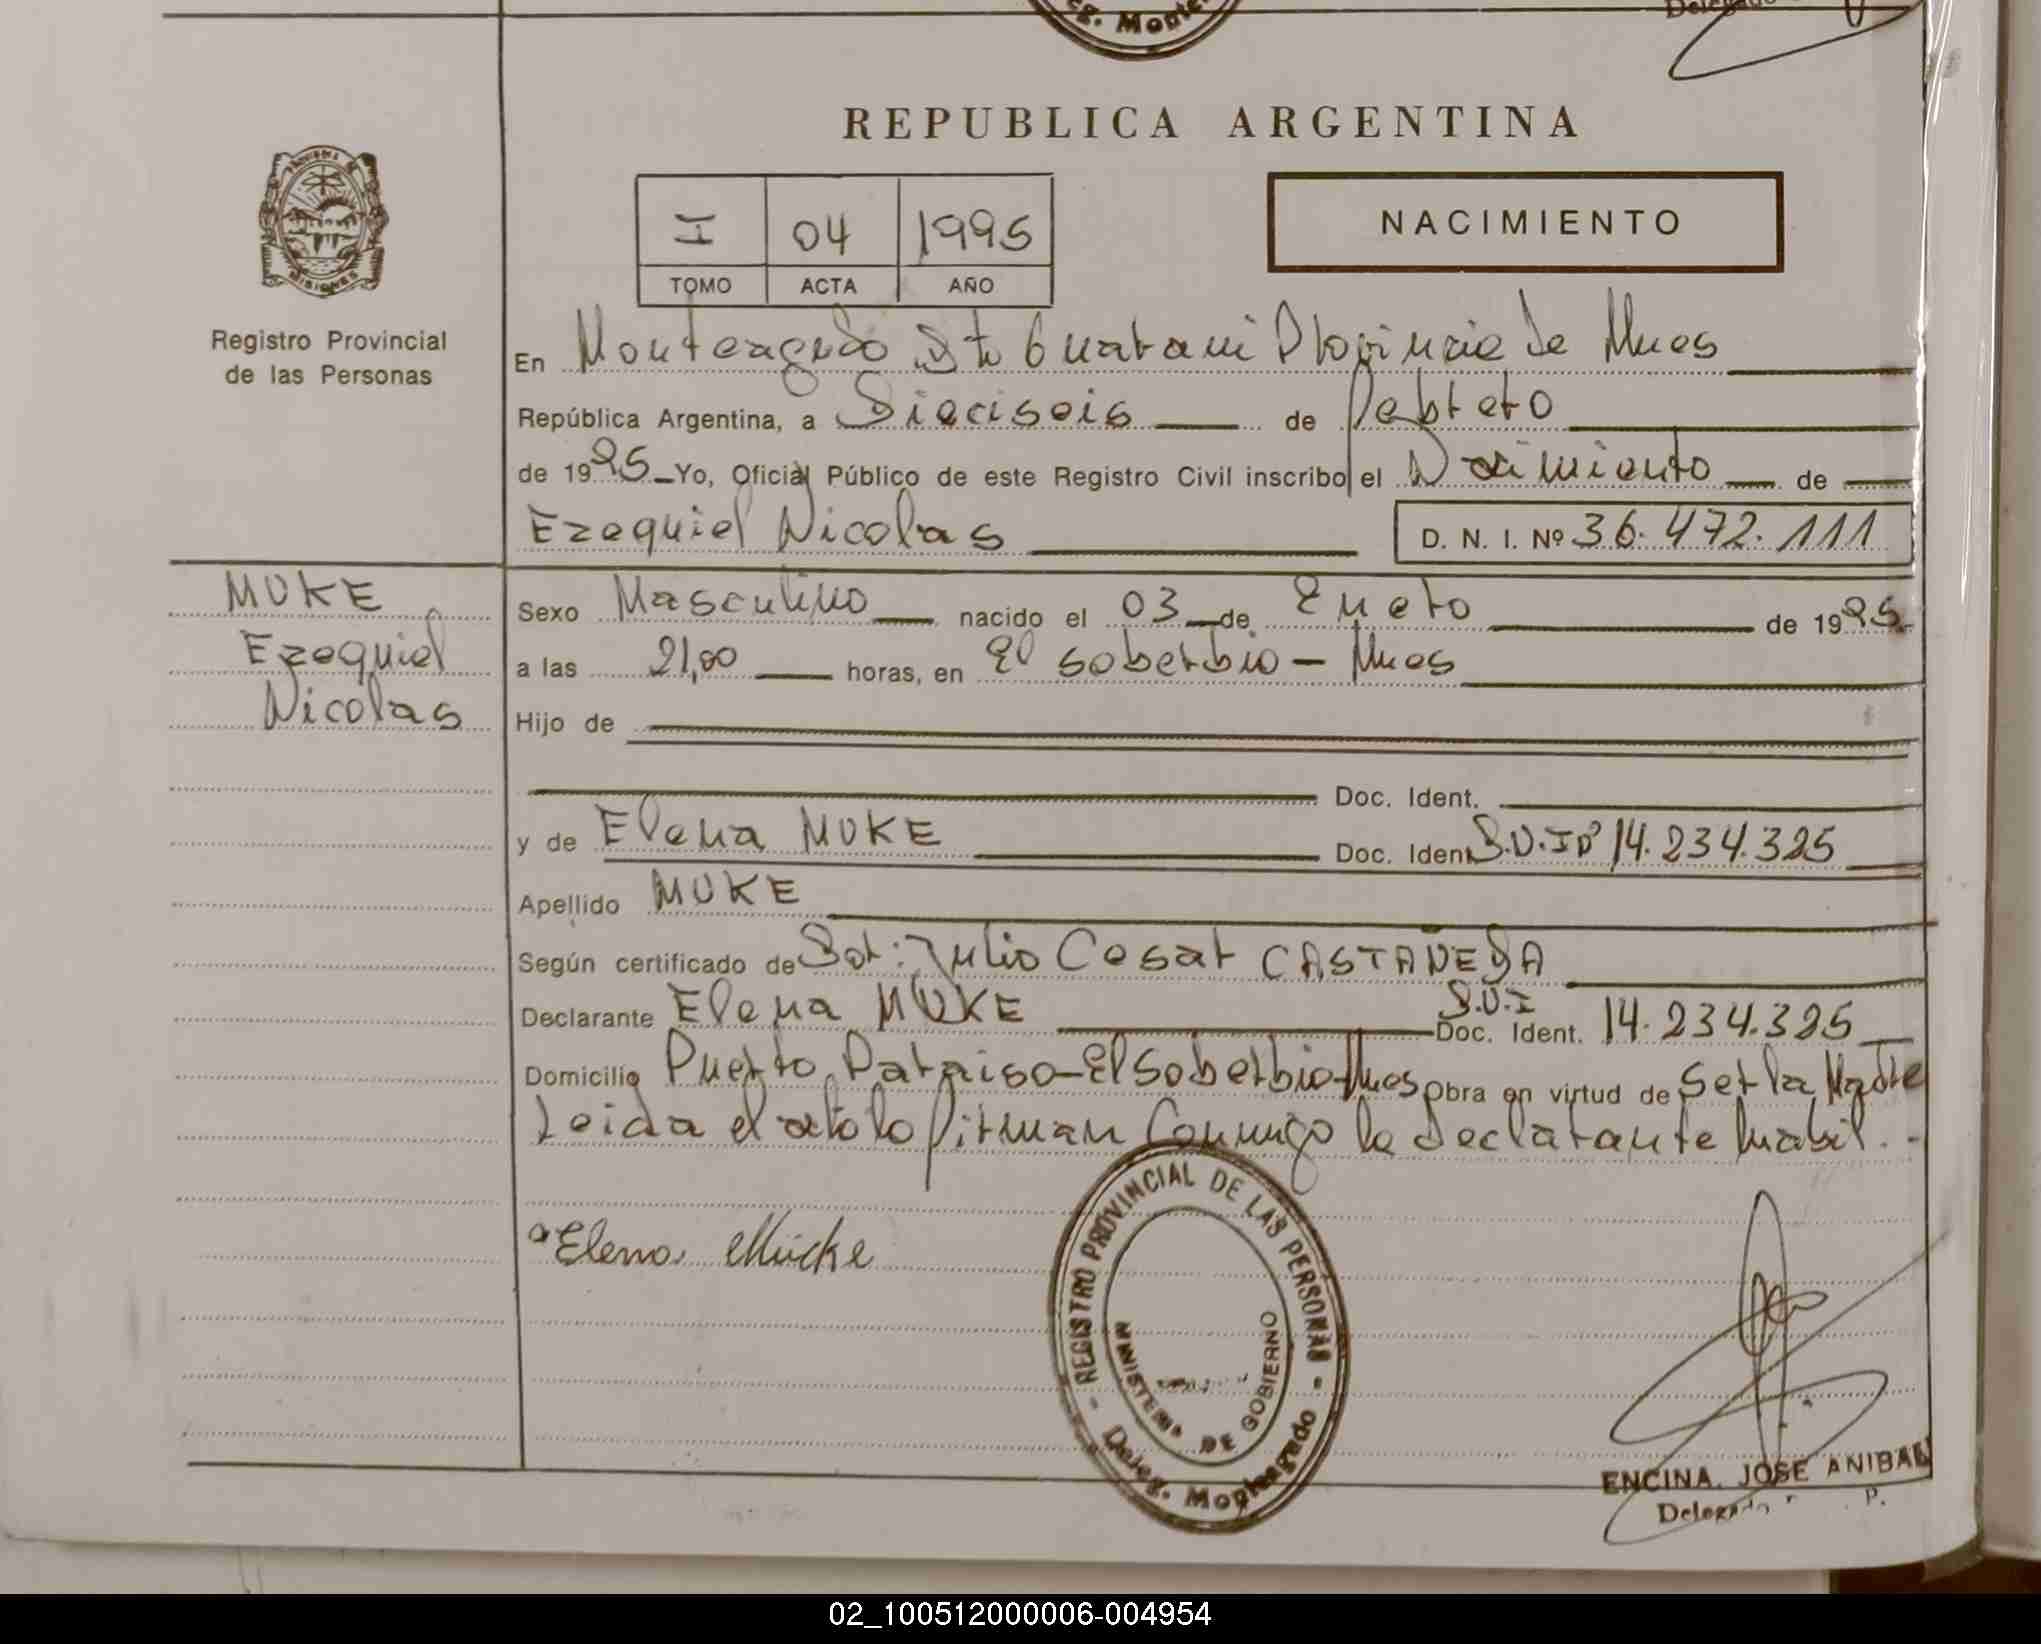 eg. Monte
Delegado
REPUBLICA ARGENTINA
PROVINCIA DE
MISIONES
I 04 1995
TOMO ACTA AÑO
NACIMIENTO
Registro Provincial
de las Personas
En Monteagudo Dto Guarani Provincia de Mnes
República Argentina, a Dieciseis de Febrero
de 1995 Yo, Oficial Público de este Registro Civil inscribo el Nacimiento de
Ezequiel Nicolas D. N. I. Nº 36.472.111
MUKE
Ezequiel
Nicolas
Sexo Masculino nacido el 03 de Enero de 1995
a las 21,00 horas, en El soberbio - Mnes
Hijo de
Doc. Ident.
y de Elena MUKE Doc. Ident. D.N.I Nº 14.234.325
Apellido MUKE
Según certificado de Dor: Julio Cesar CASTAÑEDA
Declarante Elena MUKE D.N.I Doc. Ident. 14.234.325
Domicilio Puerto Paraiso-El Soberbio-Mnes Obra en virtud de Ser la Madre
Leida el acta la firman Conmigo la declarante habil.-
Elena Mücke
- REGISTRO PROVINCIAL DE LAS PERSONAS -
MINISTERIO DE GOBIERNO
Deleg. Monteagudo
ENCINA, JOSE ANIBAL
Delegado P.
02_100512000006-004954